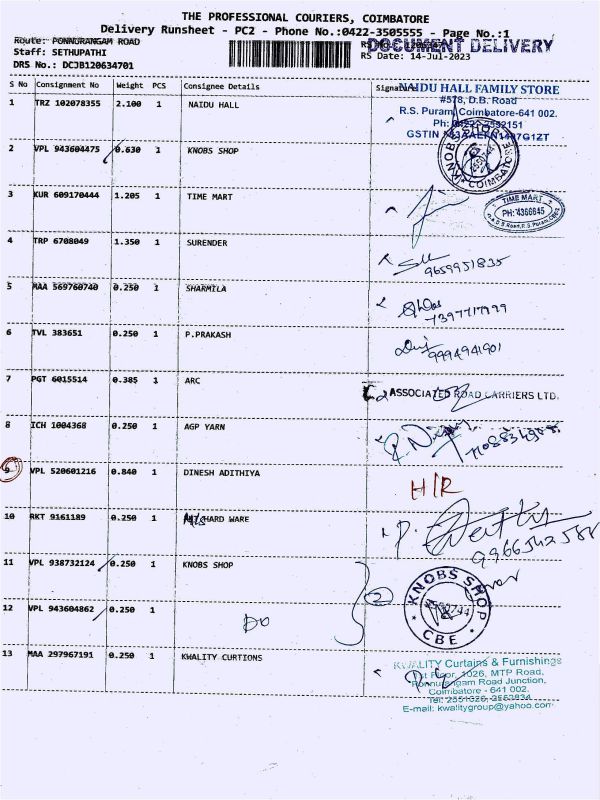 THE PROFESSIONAL COURIERS, COIMBATORE
Delivery Runsheet - PC2 - Phone No.:0422-3505555 - Page No.:1
Route: PONNURANGAM ROAD
DOCUMENT DELIVERY
Staff: SETHUPATHI
RS Date: 14-Jul-2023
DRS No.: DCJB120634701
S No Consignment No Weight PCS Consignee Details Signature
NAIDU HALL FAMILY STORE
#578, D.B. Road
R.S. Puram, Coimbatore-641 002.
1 TRZ 102078355 2.100 1 NAIDU HALL
2 VPL 943604475 0.630 1 KNOBS SHOP
KNOBS SHOP COIMBATORE
3 KUR 609170444 1.205 1 TIME MART
TIME MART
PH: 4366645
4 TRP 6708049 1.350 1 SURENDER
9659951835
5 MAA 569760740 0.250 1 SHARMILA
7397717999
6 TVL 383651 0.250 1 P.PRAKASH
9994941901
7 PGT 6015514 0.385 1 ARC
ASSOCIATED ROAD CARRIERS LTD.
8 ICH 1004368 0.250 1 AGP YARN
9 VPL 520601216 0.840 1 DINESH ADITHIYA
H/R
10 RKT 9161189 0.250 1 HARD WARE
11 VPL 938732124 0.250 1 KNOBS SHOP
2
KNOBS SHOP
CBE
12 VPL 943604862 0.250 1 DO
13 MAA 297967191 0.250 1 KWALITY CURTIONS
KWALITY Curtains & Furnishings
1st Floor, 1026, MTP Road,
Ponnurangam Road Junction,
Coimbatore - 641 002.
E-mail: kwalitygroup@yahoo.com